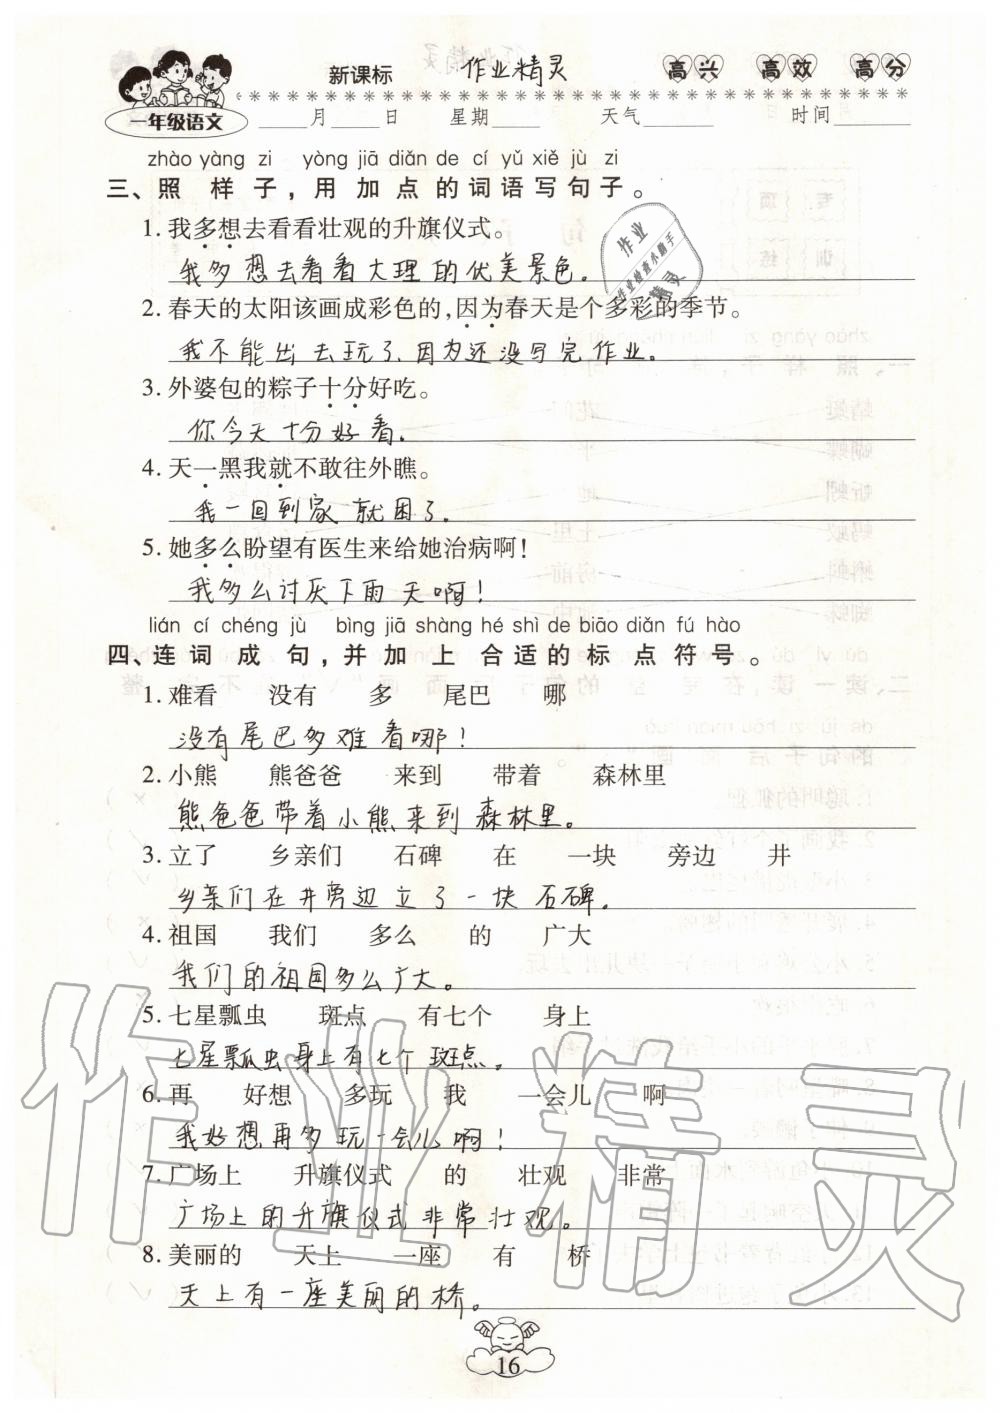 新课标 作业精灵 高兴 高效 高分
一年级语文 月 日 星期 天气 时间
zhào yàng zi yòng jiā diǎn de cí yǔ xiě jù zi
三、照样子,用加点的词语写句子。
1.我多想去看看壮观的升旗仪式。
我多想去看看大理的优美景色。
2.春天的太阳该画成彩色的,因为春天是个多彩的季节。
我不能出去玩了,因为还没写完作业。
3.外婆包的粽子十分好吃。
你今天十分好看.
4.天一黑我就不敢往外瞧。
我一回到家就困了.
5.她多么盼望有医生来给她治病啊!
我多么讨厌下雨天啊!
lián cí chéng jù bìng jiā shàng hé shì de biāo diǎn fú hào
四、连词成句,并加上合适的标点符号。
1.难看 没有 多 尾巴 哪
没有尾巴多难看哪!
2.小熊 熊爸爸 来到 带着 森林里
熊爸爸带着小熊来到森林里。
3.立了 乡亲们 石碑 在 一块 旁边 井
乡亲们在井旁边立了一块石碑。
4.祖国 我们 多么 的 广大
我们的祖国多么广大。
5.七星瓢虫 斑点 有七个 身上
七星瓢虫身上有七个斑点。
6.再 好想 多玩 我 一会儿 啊
我好想再多玩一会儿啊!
7.广场上 升旗仪式 的 壮观 非常
广场上的升旗仪式非常壮观。
8.美丽的 天上 一座 有 桥
天上有一座美丽的桥。
16
作业
作业检查小助手
精灵
作业精灵